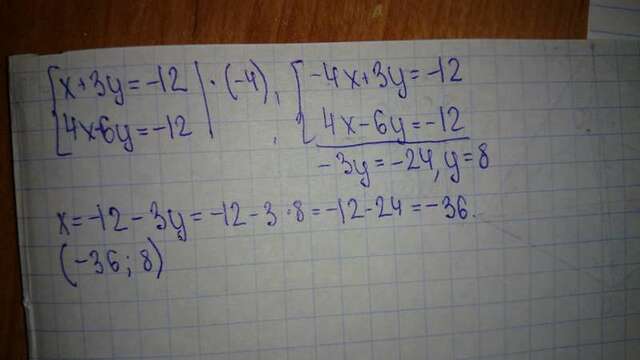 x+3y=-12 | ·(-4), -4x+3y=-12
4x-6y=-12 , 4x-6y=-12
-3y=-24, y=8
x=-12-3y=-12-3·8=-12-24=-36.
(-36; 8)